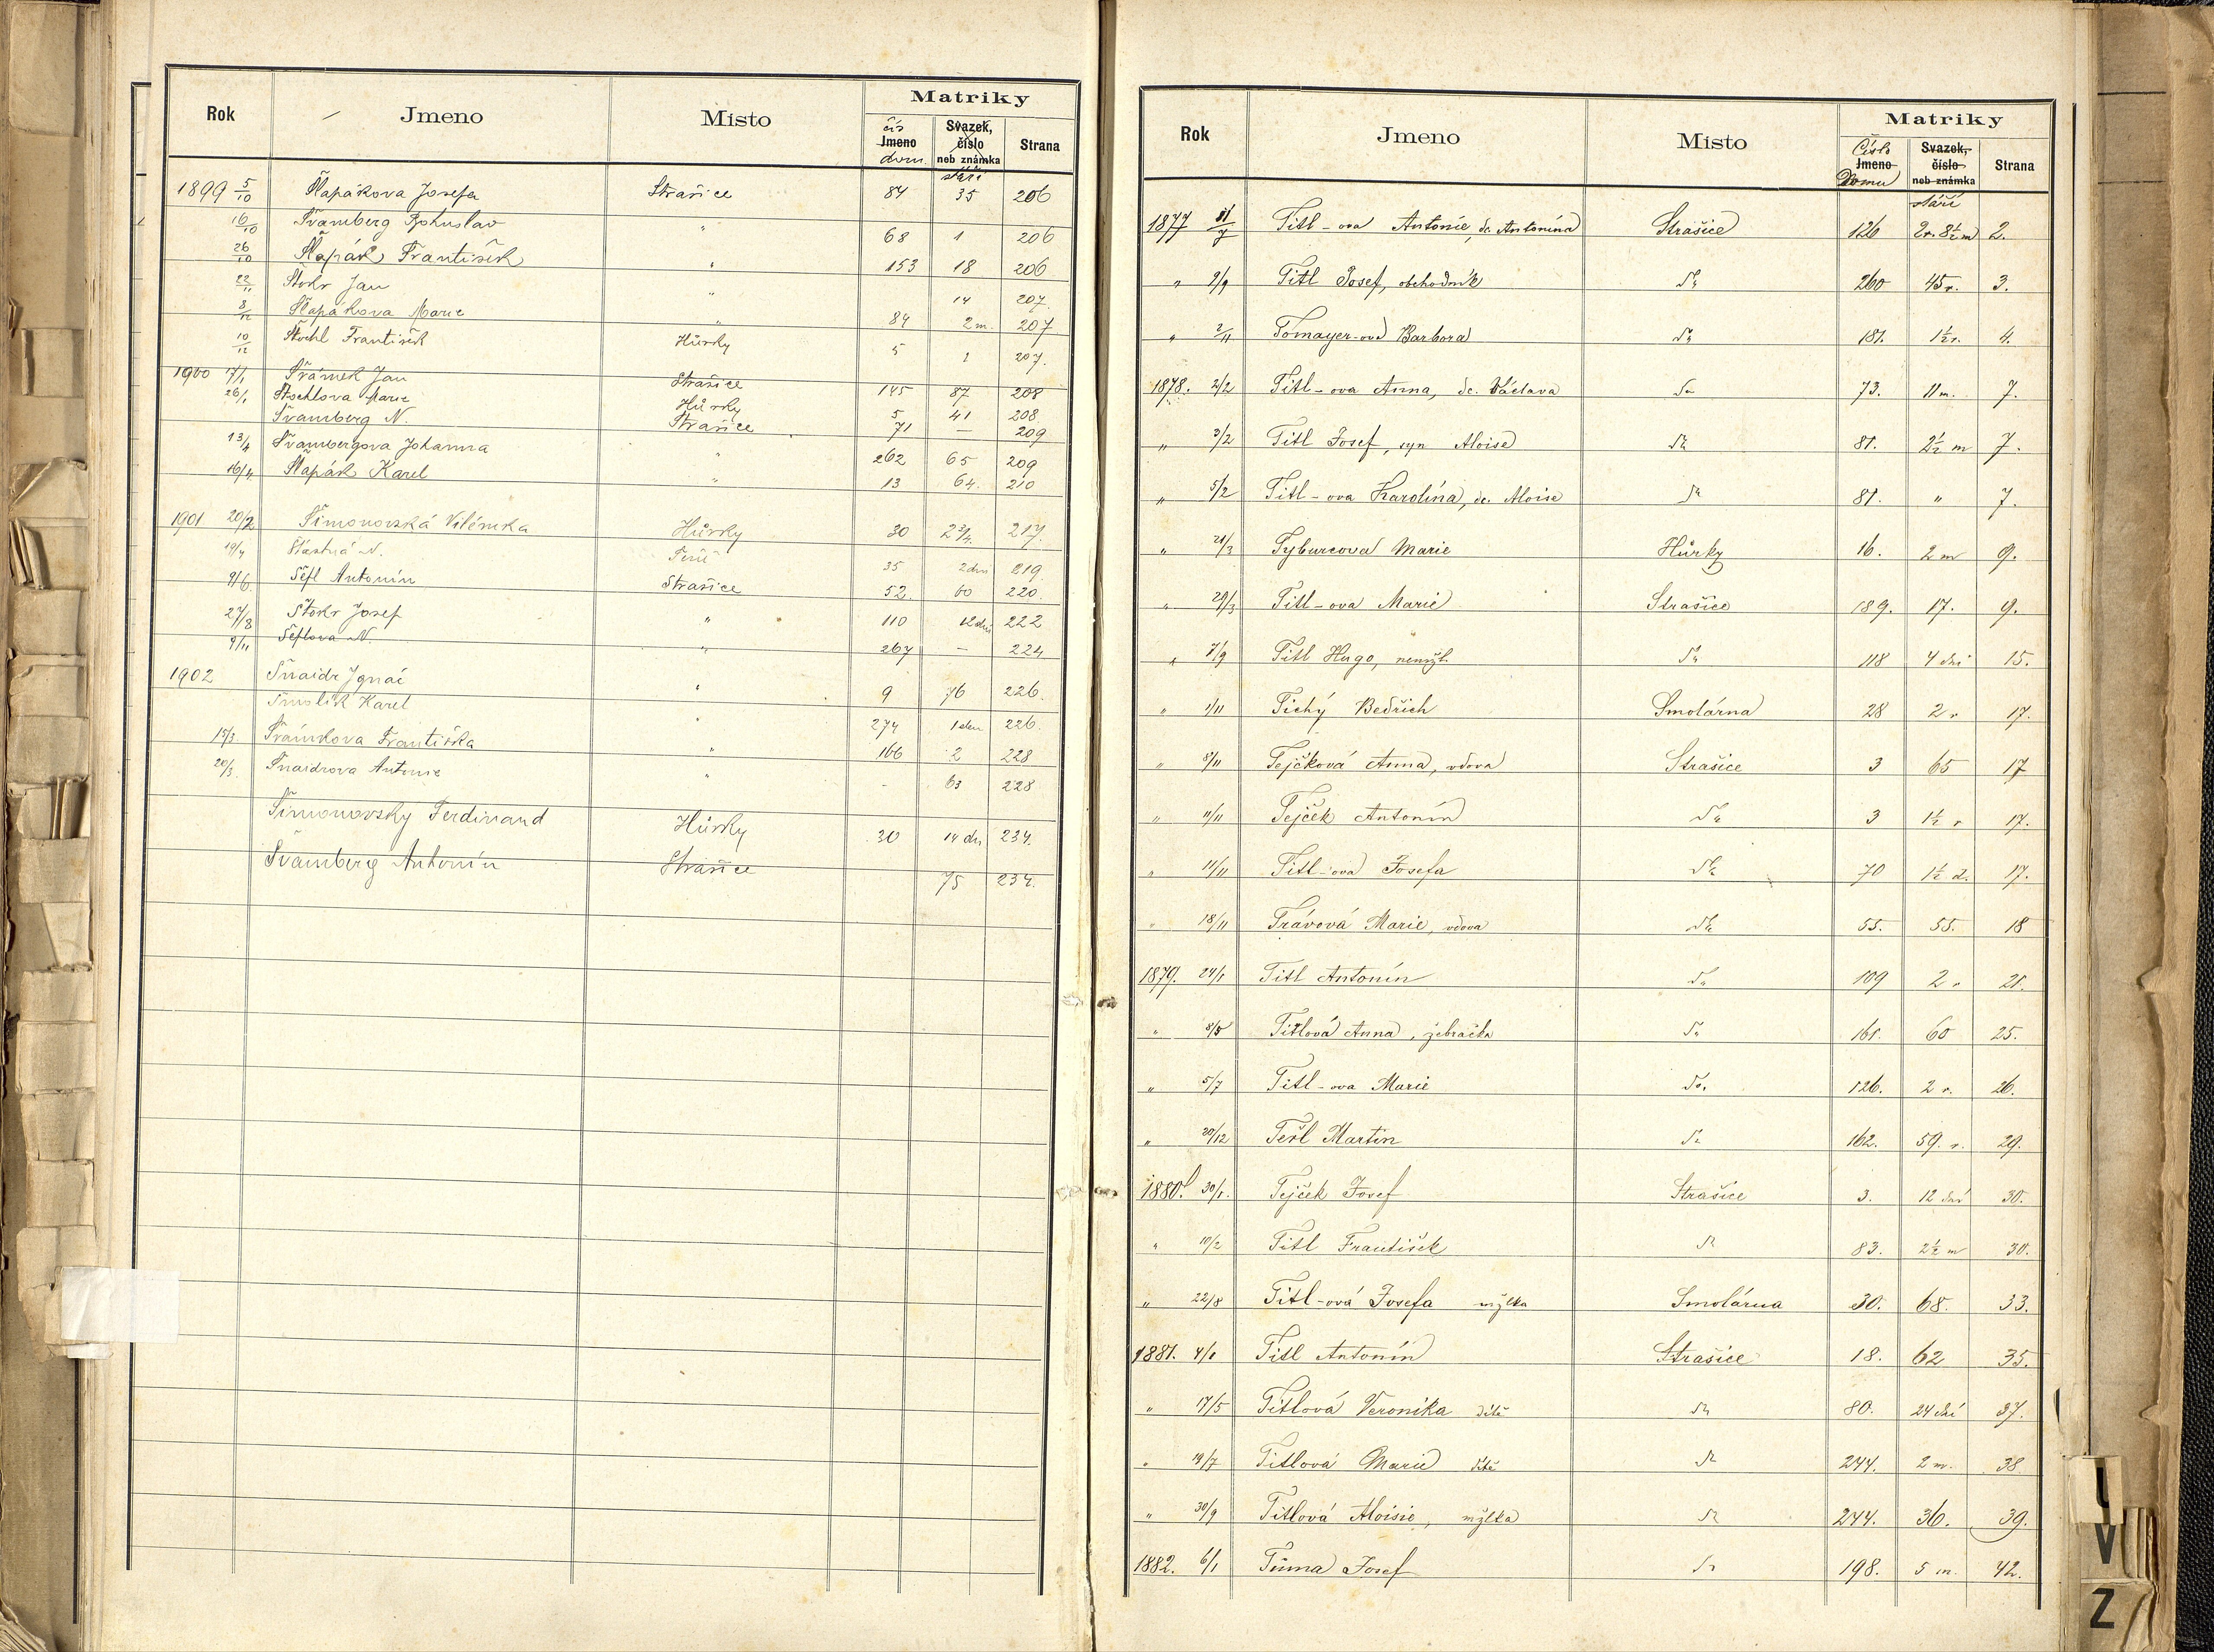 Matriky
Rok Jmeno Místo čís Jmeno dom. Svazek, číslo neb známka stáří Strana
1899 5/10 Šlapákova Josefa Strašice 84 35 206
16/10 Švamberg Bohuslav " 68 1 206
26/10 Šlapák František " 153 18 206
22/11 Štohr Jan " 14 207.
8/12 Šlapákova Marie " 84 2 m. 207
10/12 Štochl František Hůrky 5 1 207.
1900 17/1 Šrámek Jan Strašice 145 87 208
26/1 Štochlova Marie Hůrky 5 41 208
Švamberg N. Strašice 71 — 209
13/4 Švambergova Johanna " 262 65 209
16/4 Šlapák Karel " 13 64. 210
1901 20/2 Šimonovská Vilémka Hůrky 30 2 3/4. 217.
19/4 Šťastná N. 35 2 dni 219
9/6. Šefl Antonín Strašice 52. 60 220.
27/8 Štohr Josef " 110 12 dní 222
9/11 Šeflova N. " 267 — 224
1902 Šnaidr Ignác " 9 76 226.
Šmolík Karel " 274 1 den 226
15/3. Šrámkova Františka " 166 2 228
20/3. Šnaidrova Antonie " - 63 228
Šimonovsky Ferdinand Hůrky 30 14 dn 234.
Švamberg Antonín Strašice 75 234.
Matriky
Rok Jmeno Místo Číslo Jmeno Domu Svazek, číslo neb známka stáří Strana
1877 31/7 Titl-ova Antonie, dc. Antonína Strašice 126 2r. 8½m 2.
" 9/9 Titl Josef, obchodník dto 260 45 r. 3.
" 2/11 Tomayer-ova Barbora dto 181. 1½ r. 4.
1878. 2/2 Titl-ova Anna, dc. Václava dto 73. 11 m. 7.
" 3/2 Titl Josef, syn Aloise dto 81. 2½ m 7.
" 5/2 Titl-ova Karolína, dc. Aloise dto 81. " 7.
" 21/3 Tyburcova Marie Hůrky 16. 2 m 9.
" 29/3 Titl-ova Marie Strašice 189. 17. 9.
" 7/9 Titl Hugo, nemžl. dto 118 4 dni 15.
" 1/11 Tichý Bedřich Smolárna 28 2 r 17.
" 8/11 Tejčková Anna, vdova Strašice 3 65 17
" 11/11 Tejček Antonín dto 3 1½ r 17.
" 11/11 Titl-ova Josefa dto 70 1½ d. 17.
" 18/11 Trávová Marie, vdova dto 55. 55. 18
1879. 24/1 Titl Antonín dto 109 2 r 21.
" 8/5 Titlová Anna, žebračka dto 161. 60 25.
" 5/7 Titl-ova Marie dto 126. 2 r. 26.
" 20/12 Teřl Martin dto 162. 59. r. 29.
1880. 30/1. Tejček Josef Strašice 3. 12 dní 30.
" 10/2 Titl František dto 83. 2½ m 30.
" 22/8 Titl-ová Josefa mžlka Smolárna 30. 68. 33.
1881. 4/1 Titl Antonín Strašice 18. 62 35.
" 17/5 Titlová Veronika dítě dto 80. 24 dní 37.
" 19/7 Titlová Marie dítě dto 244. 2 m. 38
" 30/9 Titlová Aloisie, mžlka dto 244. 36. 39.
1882. 6/1 Tůma Josef dto 198. 5 m. 42.
V
Z